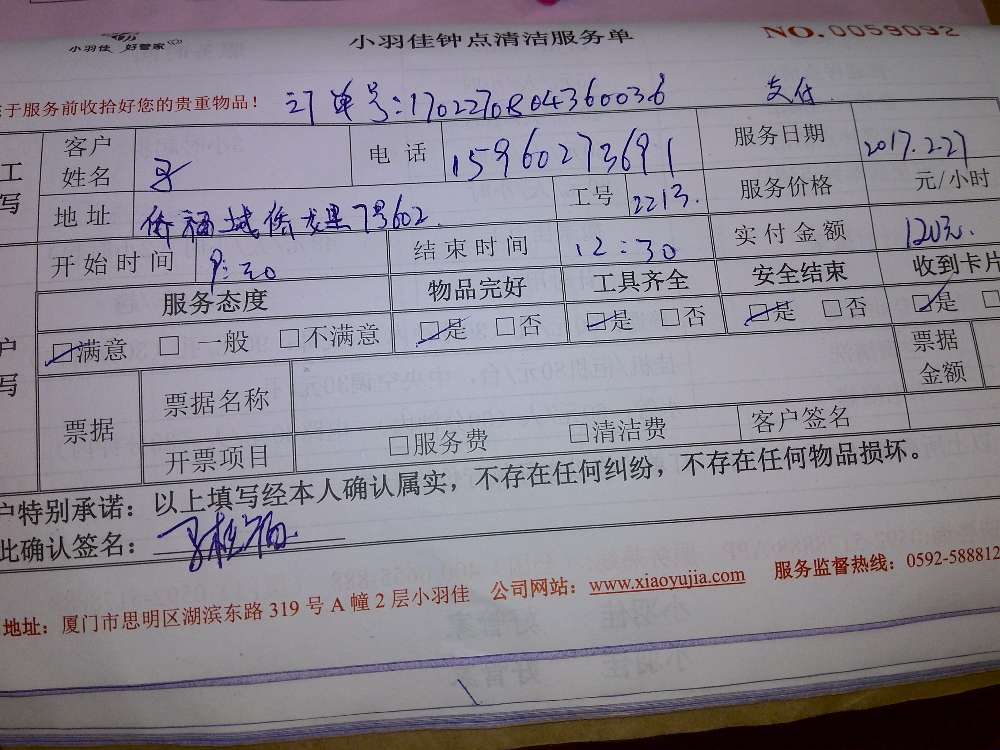 小羽佳 好管家 小羽佳钟点清洁服务单 NO.0059092
于服务前收拾好您的贵重物品！ 订单号：1702270804360036 支付
工 客户姓名 电话 15960273691 服务日期 2017.2.27
写 地址 侨福城侨龙里7号602 工号 2213. 服务价格 元/小时
开始时间 9:30 结束时间 12:30 实付金额 120元.
服务态度 物品完好 工具齐全 安全结束 收到卡片
户 ☑满意 □ 一般 □不满意 ☑是 □否 ☑是 □否 ☑是 □否 ☑是
写 票据 票据名称 票据金额
开票项目 □服务费 □清洁费 客户签名
户特别承诺：以上填写经本人确认属实，不存在任何纠纷，不存在任何物品损坏。
此确认签名：
地址：厦门市思明区湖滨东路 319 号 A 幢 2 层小羽佳 公司网站：www.xiaoyujia.com 服务监督热线：0592-588812